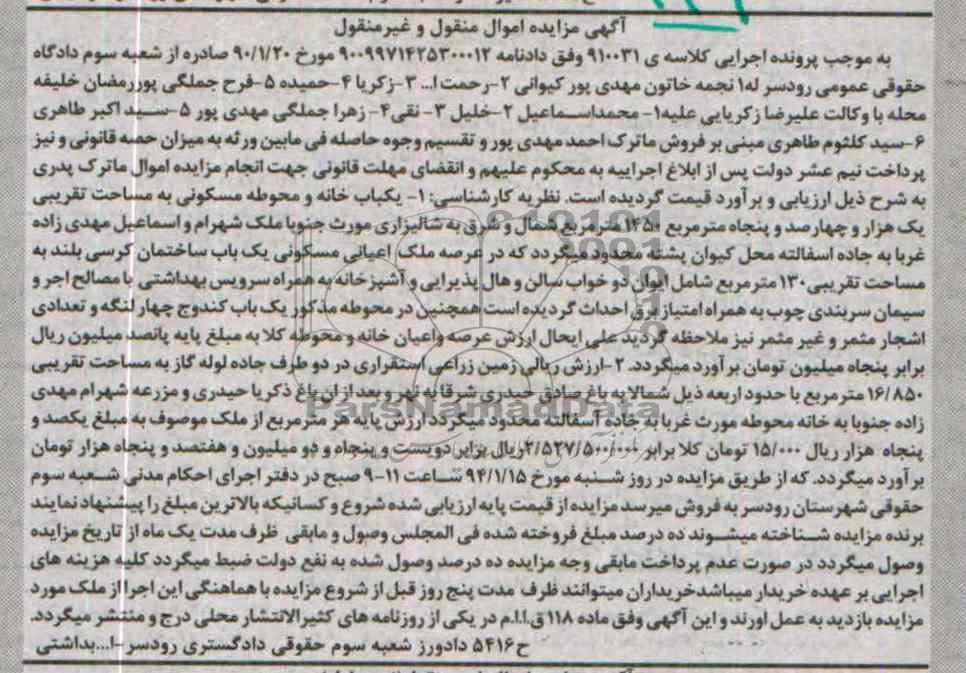 آگهی مزایده اموال منقول و غیرمنقول
به موجب پرونده اجرایی کلاسه ی ۹۱۰۰۳۱ وفق دادنامه ۹۰۰۹۹۷۱۴۲۵۳۰۰۰۱۲ مورخ ۹۰/۱/۲۰ صادره از شعبه سوم دادگاه
حقوقی عمومی رودسر له۱ نجمه خاتون مهدی پور کیوانی ۲-رحمت ا... ۳-زکریا ۴-حمیده ۵-فرح جملگی پوررمضان خلیفه
محله با وکالت علیرضا زکریایی علیه۱- محمداسماعیل ۲-خلیل ۳- نقی۴- زهرا جملگی مهدی پور ۵-سید اکبر طاهری
۶-سید کلثوم طاهری مبنی بر فروش ماترک احمد مهدی پور و تقسیم وجوه حاصله فی مابین ورثه به میزان حصه قانونی و نیز
پرداخت نیم عشر دولت پس از ابلاغ اجراییه به محکوم علیهم و انقضای مهلت قانونی جهت انجام مزایده اموال ماترک پدری
به شرح ذیل ارزیابی و برآورد قیمت گردیده است. نظریه کارشناسی: ۱- یکباب خانه و محوطه مسکونی به مساحت تقریبی
یک هزار و چهارصد و پنجاه مترمربع ۱۴۵۰ مترمربع شمال و شرق به شالیزاری مورث جنوبا ملک شهرام و اسماعیل مهدی زاده
غربا به جاده اسفالته محل کیوان پشته محدود میگردد که در عرصه ملک اعیانی مسکونی یک باب ساختمان کرسی بلند به
مساحت تقریبی۱۳۰ مترمربع شامل ایوان دو خواب سالن و هال پذیرایی و آشپزخانه به همراه سرویس بهداشتی با مصالح اجر و
سیمان سربندی چوب به همراه امتیاز برق احداث گردیده است همچنین در محوطه مذکور یک باب کندوج چهار لنگه و تعدادی
اشجار مثمر و غیر مثمر نیز ملاحظه گردید علی ایحال ارزش عرصه واعیان خانه و محوطه کلا به مبلغ پایه پانصد میلیون ریال
برابر پنجاه میلیون تومان برآورد میگردد. ۲-ارزش ریالی زمین زراعی استقراری در دو طرف جاده لوله گاز به مساحت تقریبی
۱۶/۸۵۰ مترمربع با حدود اربعه ذیل شمالا به باغ صادق حیدری شرقا به نهر و بعد از ان باغ ذکریا حیدری و مزرعه شهرام مهدی
زاده جنوبا به خانه محوطه مورث غربا به جاده آسفالته محدود میگردد ارزش پایه هر مترمربع از ملک موصوف به مبلغ یکصد و
پنجاه هزار ریال ۱۵/۰۰۰ تومان کلا برابر ۲/۵۲۷/۵۰۰/۰۰۰ ریال برابر دویست و پنجاه و دو میلیون و هفتصد و پنجاه هزار تومان
برآورد میگردد. که از طریق مزایده در روز شنبه مورخ ۹۴/۱/۱۵ ساعت ۱۱-۹ صبح در دفتر اجرای احکام مدنی شعبه سوم
حقوقی شهرستان رودسر به فروش میرسد مزایده از قیمت پایه ارزیابی شده شروع و کسانیکه بالاترین مبلغ را پیشنهاد نمایند
برنده مزایده شناخته میشوند ده درصد مبلغ فروخته شده فی المجلس وصول و مابقی ظرف مدت یک ماه از تاریخ مزایده
وصول میگردد در صورت عدم پرداخت مابقی وجه مزایده ده درصد وصول شده به نفع دولت ضبط میگردد کلیه هزینه های
اجرایی بر عهده خریدار میباشدخریداران میتوانند ظرف مدت پنج روز قبل از شروع مزایده با هماهنگی این اجرا از ملک مورد
مزایده بازدید به عمل اورند و این آگهی وفق ماده ۱۱۸ ق.ا.ا.م در یکی از روزنامه های کثیرالانتشار محلی درج و منتشر میگردد.
ح۵۴۱۶ دادورز شعبه سوم حقوقی دادگستری رودسر-ا...بداشتی
ParsNamadData